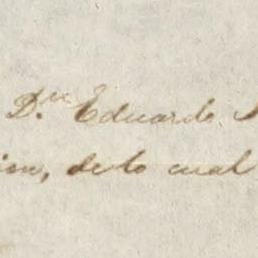 D.n Eduardo
ion, de lo cual